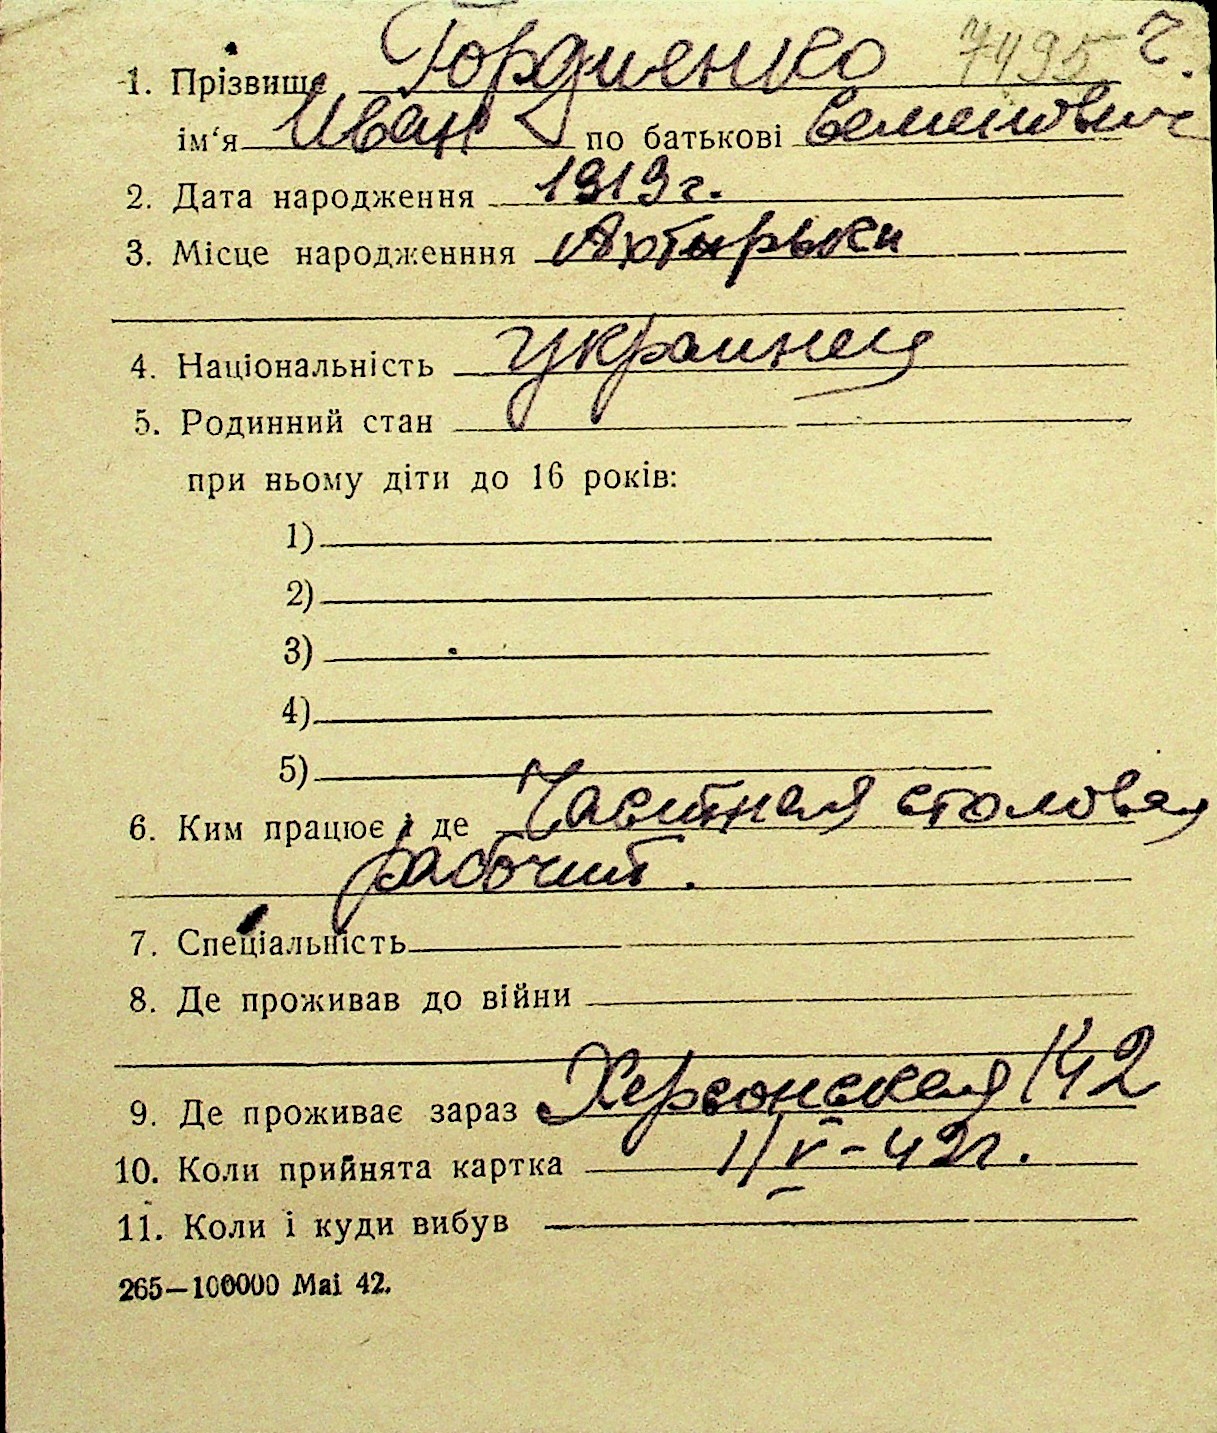 7495 г.
1. Прізвище Гордиенко
ім‘я Иван по батькові Семенович
2. Дата народження 1919 г.
3. Місце народженння Ахтырьки
4. Національність украинец
5. Родинний стан
при ньому діти до 16 років:
1)
2)
3)
4)
5)
6. Ким працює і де Частная столовая
рабочий.
7. Спеціальність
8. Де проживав до війни
9. Де проживає зараз Херсонская 42
10. Коли прийнята картка 1/V-42г.
11. Коли і куди вибув
265—100000 Mai 42.